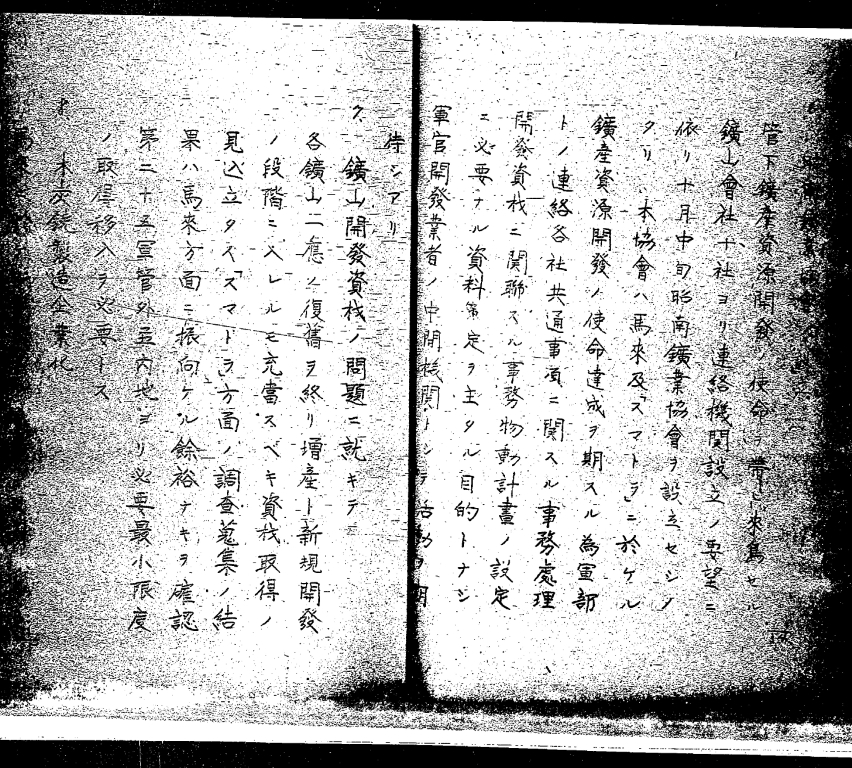 管下鑛産資源開發ノ使命ヲ帶ビ來馬セル
鑛山會社十社ヨリ連絡機關設立ノ要望ニ
依リ十月中旬昭南鑛業協會ヲ設立セシメ
タリ、本協會ハ馬來及「スマトラ」ニ於ケル
鑛産資源開發ノ使命達成ヲ期スル為軍部
トノ連絡各社共通事項ニ関スル事務處理
開發資材ニ関聯スル事務物動計畫ノ設定
ニ必要ナル資料策定ヲ主タル目的トナシ
軍官開發業者ノ中間機関トシテ活動ヲ期
待シアリ
ク、鑛山開發資材ノ問題ニ就キテ
各鑛山一應ノ復舊ヲ終リ增産ト新規開發
ノ段階ニ入レルモ充當スベキ資材取得ノ
見込立タズ「スマトラ」方面ノ調査蒐集ノ結
果ハ馬來方面ニ振向ケル餘裕ナキヲ確認
第二十五軍管外並内地ヨリ必要最小限度
ノ取得移入ヲ必要トス
木炭銑製造企業化